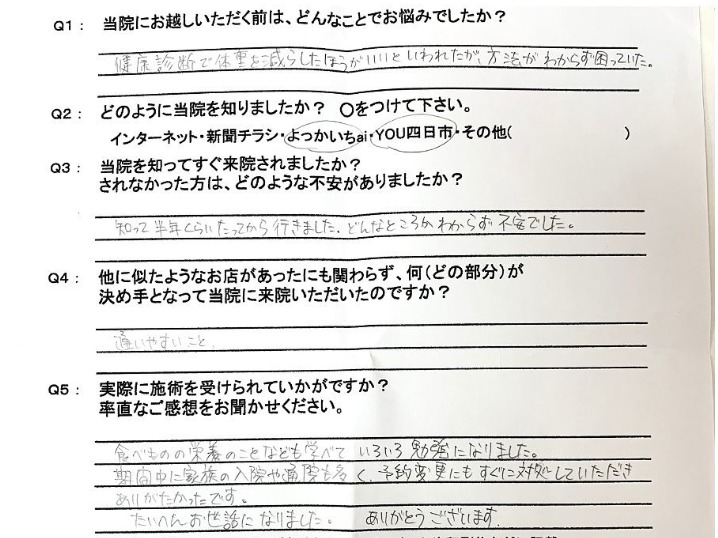 Q1： 当院にお越しいただく前は、どんなことでお悩みでしたか？
健康診断で体重を減らしたほうがいいといわれたが、方法がわからず困っていた。
Q2： どのように当院を知りましたか？ ○をつけて下さい。
インターネット・新聞チラシ・よっかいちai・YOU四日市・その他（　　　　　　　）
Q3： 当院を知ってすぐ来院されましたか？
されなかった方は、どのような不安がありましたか？
知って半年くらいたってから行きました。どんなところかわからず不安でした。
Q4： 他に似たようなお店があったにも関わらず、何（どの部分）が
決め手となって当院に来院いただいたのですか？
通いやすいこと。
Q5： 実際に施術を受けられていかがですか？
率直なご感想をお聞かせください。
食べものの栄養のことなども学べて いろいろ勉強になりました。
期間中に家族の入院や通院も多く、予約変更にもすぐに対処していただき
ありがたかったです。
たいへんお世話になりました。 ありがとうございます。